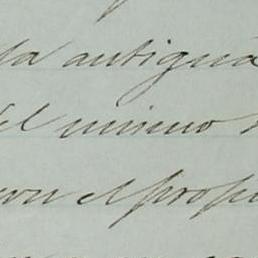 la antigua
el mismo
con el propi